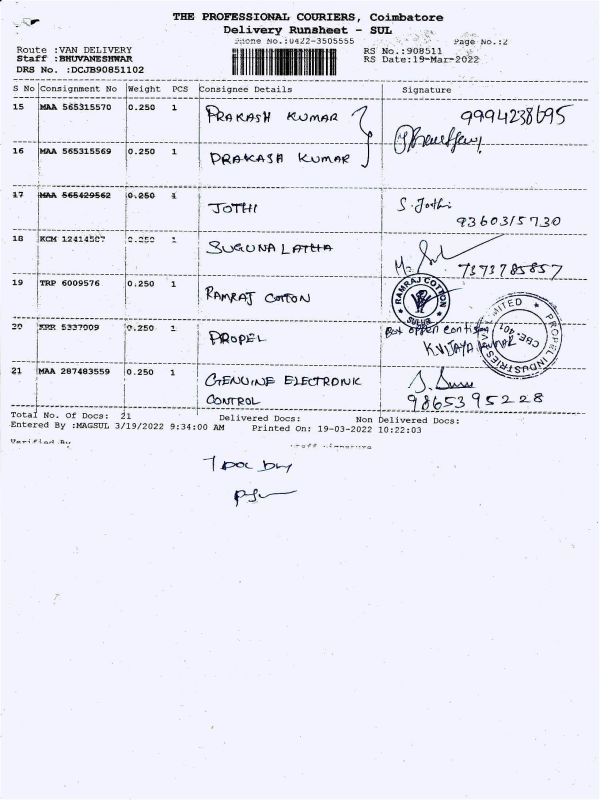 THE PROFESSIONAL COURIERS, Coimbatore
Delivery Runsheet - SUL
Phone No.:0422-3505555 Page No.:2
Route :VAN DELIVERY RS No.:908511
Staff :BHUVANESHWAR RS Date:19-Mar-2022
DRS No. :DCJB90851102
S No Consignment No Weight PCS Consignee Details Signature
15 MAA 565315570 0.250 1 PRAKASH KUMAR
16 MAA 565315569 0.250 1 PRAKASH KUMAR
17 MAA 565429562 0.250 1 JOTHI S. Jothi
9360315730
18 KCM 1241450 0.250 1 SUGUNA LATHA
7373785857
19 TRP 6009576 0.250 1 RAMRAJ COTTON
RAMRAJ COTTON
SULUR
20 KRR 5337009 0.250 1 PROPEL Box open
K.VIJAYA KUMAR
PROPEL INDUSTRIES LIMITED
CBE-401
21 MAA 287483559 0.250 1 GENUINE ELECTRONIK
CONTROL 9865395228
Total No. Of Docs: 21 Delivered Docs: Non Delivered Docs:
Entered By :MAGSUL 3/19/2022 9:34:00 AM Printed On: 19-03-2022 10:22:03
Verified By Staff Signature